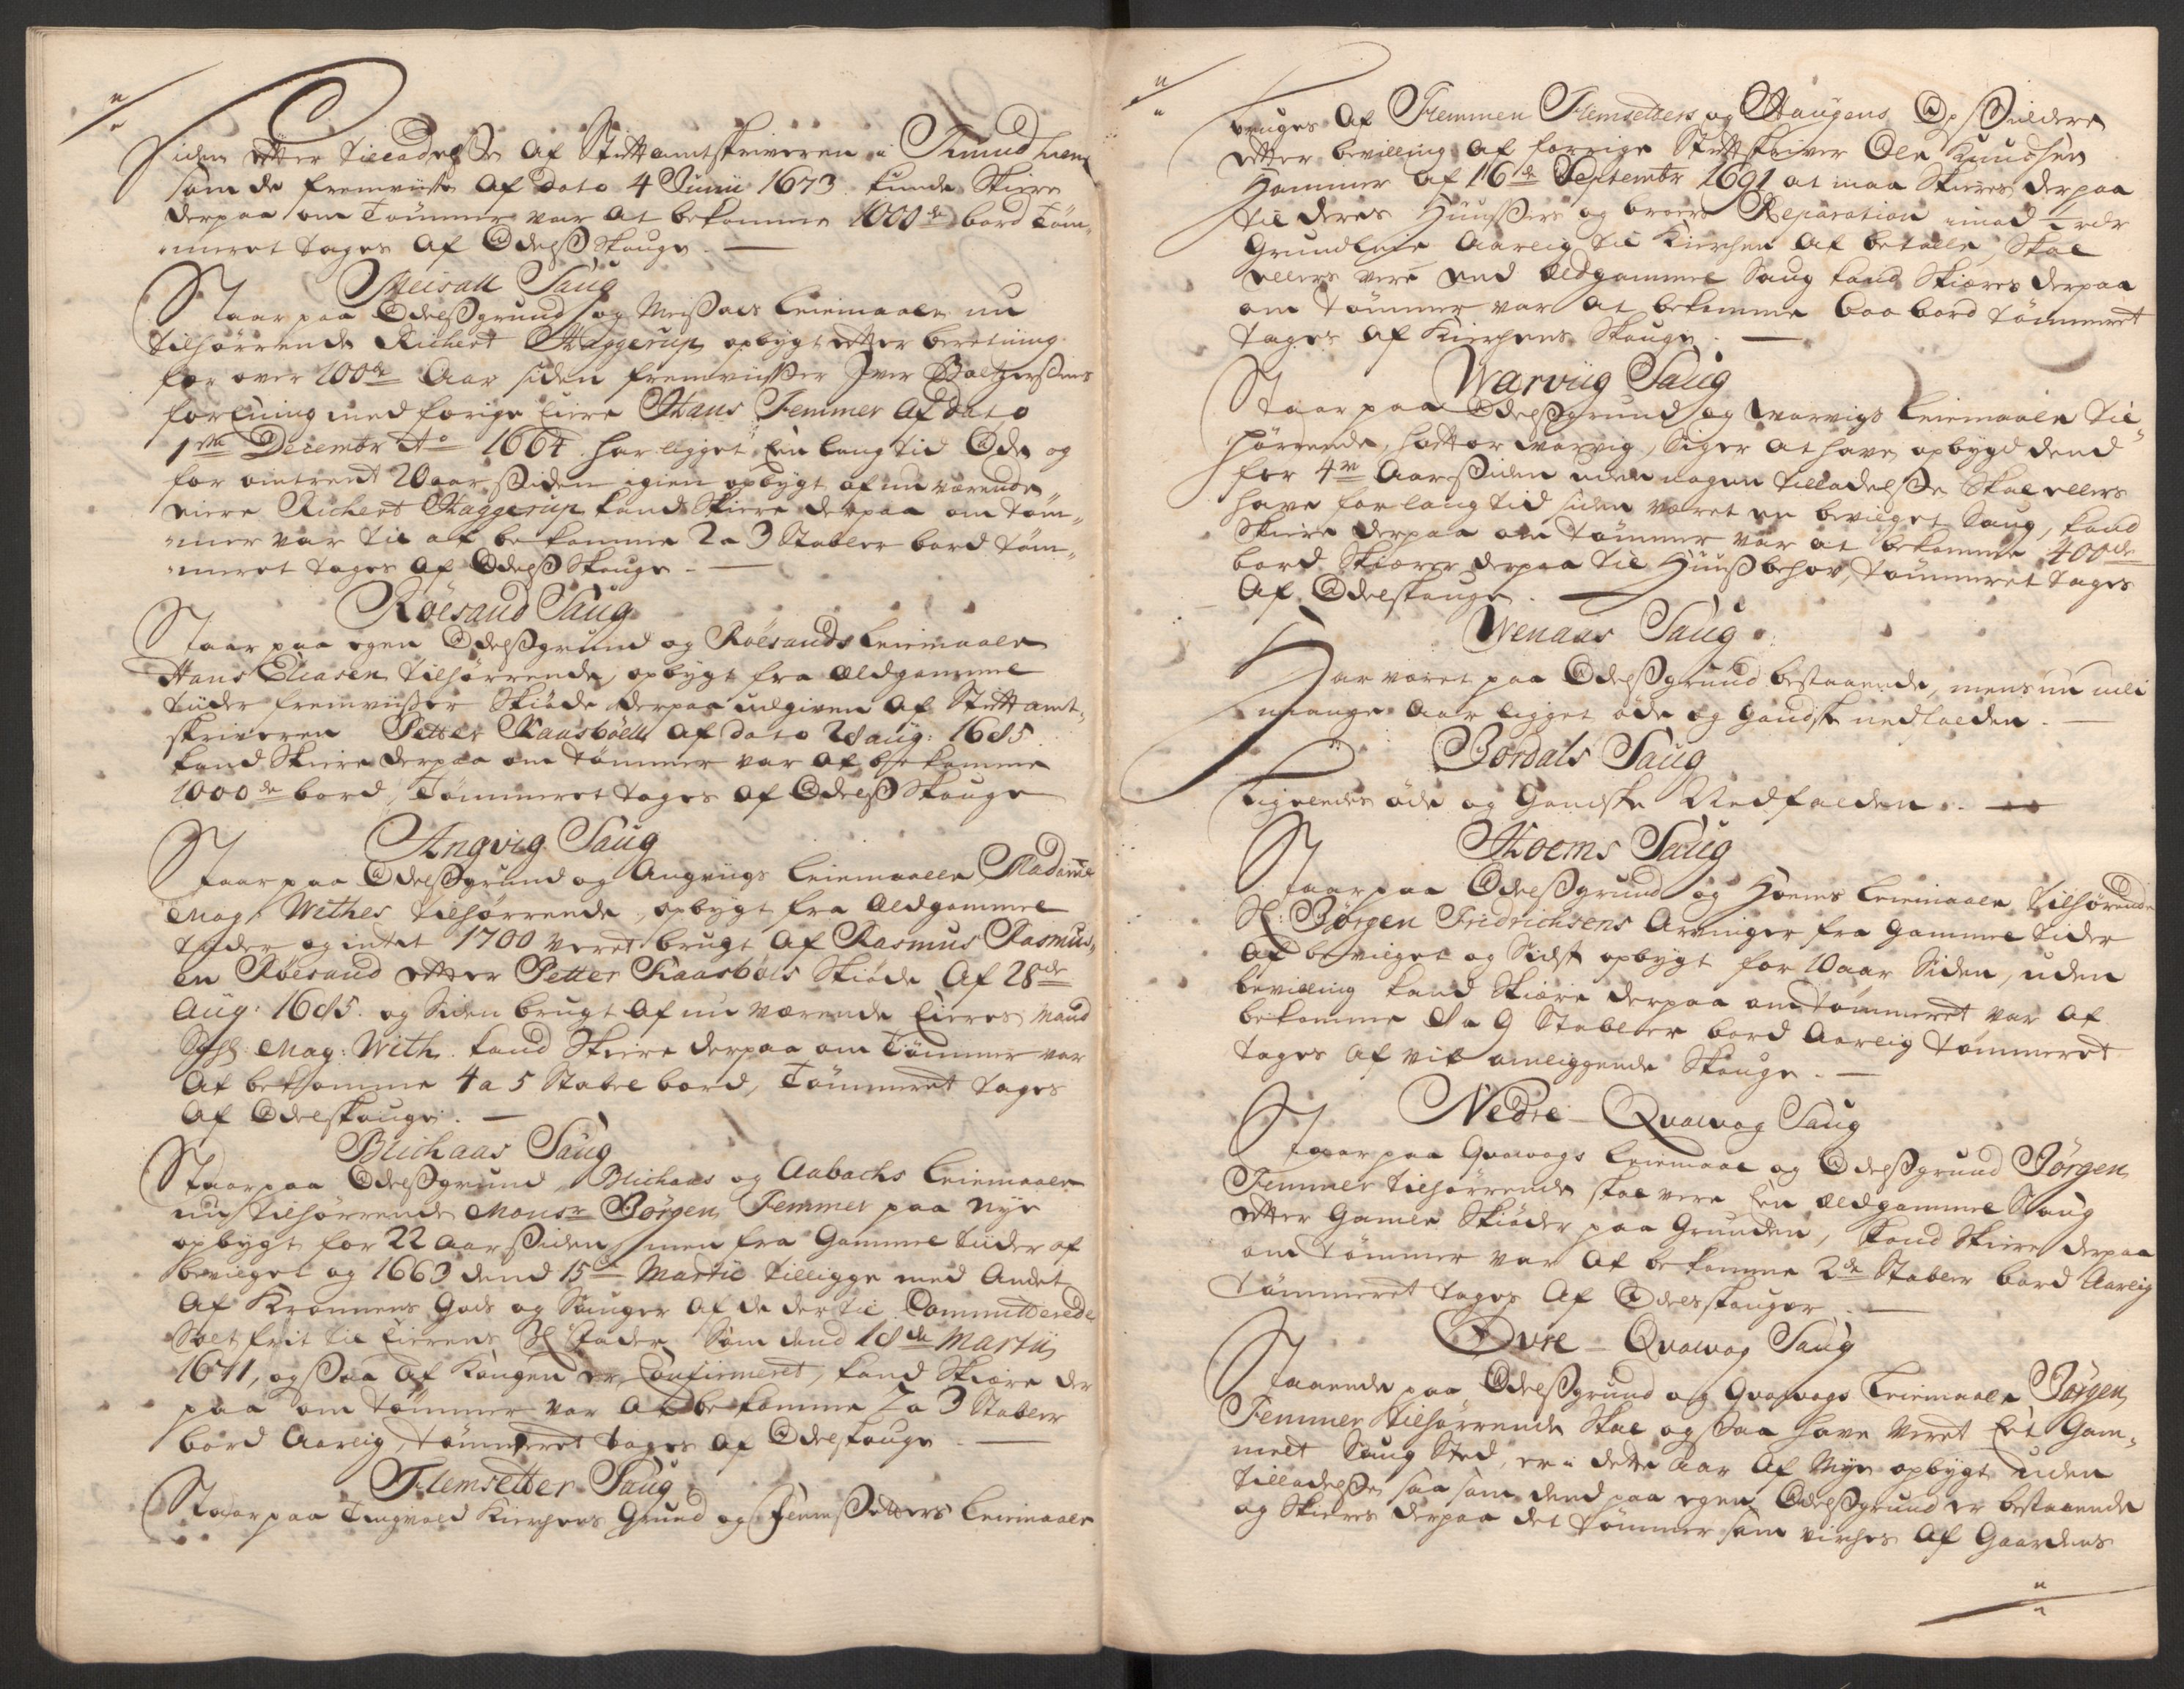 Siden efter tilladelsse af Stiftamtskriveren i Trundhiem
som de fremviiste af dato 4 Junii 1673. kunde Skiere
derpaa om Tømmer var at bekomme 1000de bord Tøm-
meret tages af Odelsskouge. —
Meisall Saug
Staar paa Odelssgrund og Meissals leiemaale nu
tilhørrende Richert Haggerup opbygt efter beretning
for over 100de Aar siden fremviisser Iver Baltzersens
forEning med forige Eiere Hans Femmer af dato
1ste Decembr Ao 1664. har ligget Een lang tid Øde og
for omtrent 20 aar ssiden igien opbygt af nu værende
Eiere Richert Haggerup kand Skiere derpaa om tøm-
mer var til at bekomme 2 a 3 Stabler bord tøm-
meret tages af Odelss Skouge. —
Röesand Saug
Staar paa egen Odelssgrund og Röesands leiemaale
Hans Eliasen tilhørrende, opbygt fra ældgammel
tiider fremviisser Skiøde derpaa udgiven af Stiftamt-
skriveren Petter Kaasböell af dato 28 aug: 1685.
kand Skiere derpaa om tømmer var at bekomme
1000de bord, Tømmeret tages af Odelss Skouge
Angvig Saug
Staar paa Odelssgrund og Angviigs leiemaalle Madame
Mag: Withes tilhørrende, opbygt fra Aldgammel
tider og intil 1700 veret brugt af Rasmus Rasmus-
en Röesand efter Petter Kaasböls Skiøde af 28de
Aug: 1685. og Siden brugt af nu værende Eieres Mand
Sahl: Mag: With. kand Skiere derpaa om Tømmer var
at bekomme 4 a 5 Stable bord, Tømmeret tages
af Odelskouge. —
Blichaas Saug
Staar paa Odelssgrund Blichaas og Aabachs leiemaale
nu tilhørrende Monsr Jörgen Femmer paa nye
opbygt for 22 aar ssiden, men fra Gammel tiider af
bevilget og 1663 dend 15de Martii tilligge med Andet
af Kronnens Gods og Sauger af de der til Committerede
Solt frit til Eierens Sl: fader Som dend 18de Martii
1671, og ssaa af Kongen er Confirmeret, kand Skiere der
paa om tømmer var at bekomme 2 a 3 Stabler
bord Aarlig, tømmeret tages af Odelskouge —
Flemsetter Saug
Staar paa Tingvold Kierches Grund og Flemssetters leiemaale
bruges af Flemmen Flemsetters og Haugens Opssiddere
efter bevilling af forrige Stiftskriver Ole Knudsen
Hammer af 16de Septembr 1691 at maa Skieres derpaa
til deres Huussers og broers Reparation imod ½ rdr
Grundleie Aarlig til Kirchen at betalle, Skal
ellers vere End ældgammel Saug kand Skieres derpaa
om tømmer var at bekomme 600 bord tømmeret
tages af Kierchens Skouge. —
Warviig Saug
Staar paa Odelssgrund og Warvigs leiemaale til-
hørrende, Warvig, Siger at have opbygd dend
for 4re Aar ssiden uden nogen tilladelsse Skal ellers
have for lang tid siden været en bevilget Saug, kand
Skiere derpaa om tømmer var at bekomme 400de
bord Skierer derpaa til Huussbehov, tømmeret tages
af Odelskouge. —
Wenaas Saug
Har været paa Odelssgrund bestaaende, mens nu udi
mange Aar ligget øde og Gandske nedfalden. —
Bordals Saug
Ligeledes øde og Gandske Nedfalden. —
Hoems Saug
Staar paa Odelssgrund og Hoems leiemaale tilhørende
Sl: Jörgen Fridrichsens Arvinger fra Gammel tider
af bevilget og Sidst opbygt for 10 aar Siden, uden
bevilling kand Skiere derpaa om tømmeret var at
bekomme 8 a 9 Stabler bord Aarlig tømmeret
tages af vit omliggende Skouge. —
Nedre Qvalvog Saug
Staar paa Qvalvogs leiemaal og Odelssgrund Jörgen
Femmer tilhørrende skal vere Een ældgammel Saug
efter Gamle Skiøder paa Grunden, kand Skiere derpaa
om tømmer var at bekomme 2de Stabler bord Aarlig
Tømmeret tages af Odelsskouger —
Øvre Qvalvog Saug
Staaende paa Odelssgrund og Qvalvogs leiemaale Jörgen
Femmer tilhørrende Skal og ssaa have veret Eet Gam-
melt Saug Sted, er i dette aar af Nye opbygt uden
tilladelsse saa som dend paa egen Odelssgrund er bestaaende
og Skieres derpaa det tømmer som virches af Gaardens